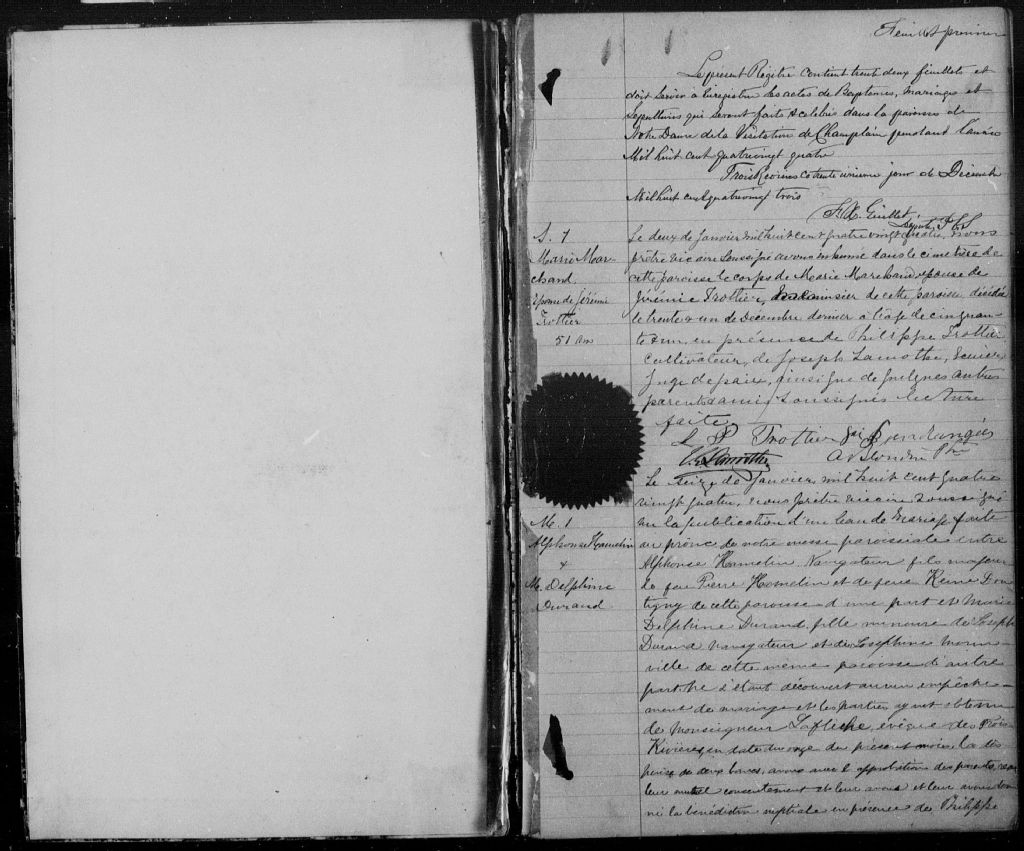 Feuillet premier
Le present Régitre contient trente deux feuillets et
doit servir à enregistrer les actes de Baptemes, mariages et
Sépultures qui seront faits & célébrés dans la paroisse de
Notre Dame de la Visitation de Champlain pendant l'année
Mil huit cent quatrevingt quatre
Trois Rivieres ce trente unieme jour de Décembre
Mil huit cent quatrevingt trois
F. X. Guillet
Député P C S
S. 1
Marie Mar-
chand
Epouse de Jérémie
Trottier
51 ans
Le deux de Janvier mil huit cent quatre vingt quatre, nous
prêtre vicaire soussigné avons inhumé dans le cimetière de
cette paroisse le corps de Marie Marchand, épouse de
Jérémie Trottier, de cette paroisse, décédée
le trente & un de Décembre dernier à l'âge de cinquan-
te & un, en présence de Philippe Trottier
cultivateur, de Joseph Lamothe, Ecuier
Juge de paix, ainsi que de quelques autres
parents & amis soussignés lecture
faite
P Trottier
Lamothe
A Blondin Ptre
M. 1
Alphonse Hamelin
&
M. Delphine
Durand
Le seize de Janvier, mil huit cent quatre
vingt quatre, nous prêtre vicaire soussigné
vu la publication d'un ban de mariage faite
au prône de notre messe paroissiale entre
Alphonse Hamelin Navigateur fils majeur
de feu Pierre Hamelin et de feue Reine Dou-
tigny de cette paroisse d'une part et Marie
Delphine Durand, fille mineure de Joseph
Durand navigateur et de Josephine Norman-
ville de cette même paroisse d'autre
part ne s'étant découvert aucun empêche-
ment de mariage et les parties ayant obtenu
de Monseigneur Laflèche, évêque des Trois-
Rivières, en date du onze du présent mois, la dis-
pense de deux bancs, avons avec l'approbation des parents, reçu
leur mutuel consentement et leur avons et leur avons don-
né la bénédiction nuptiale en présence de Philippe